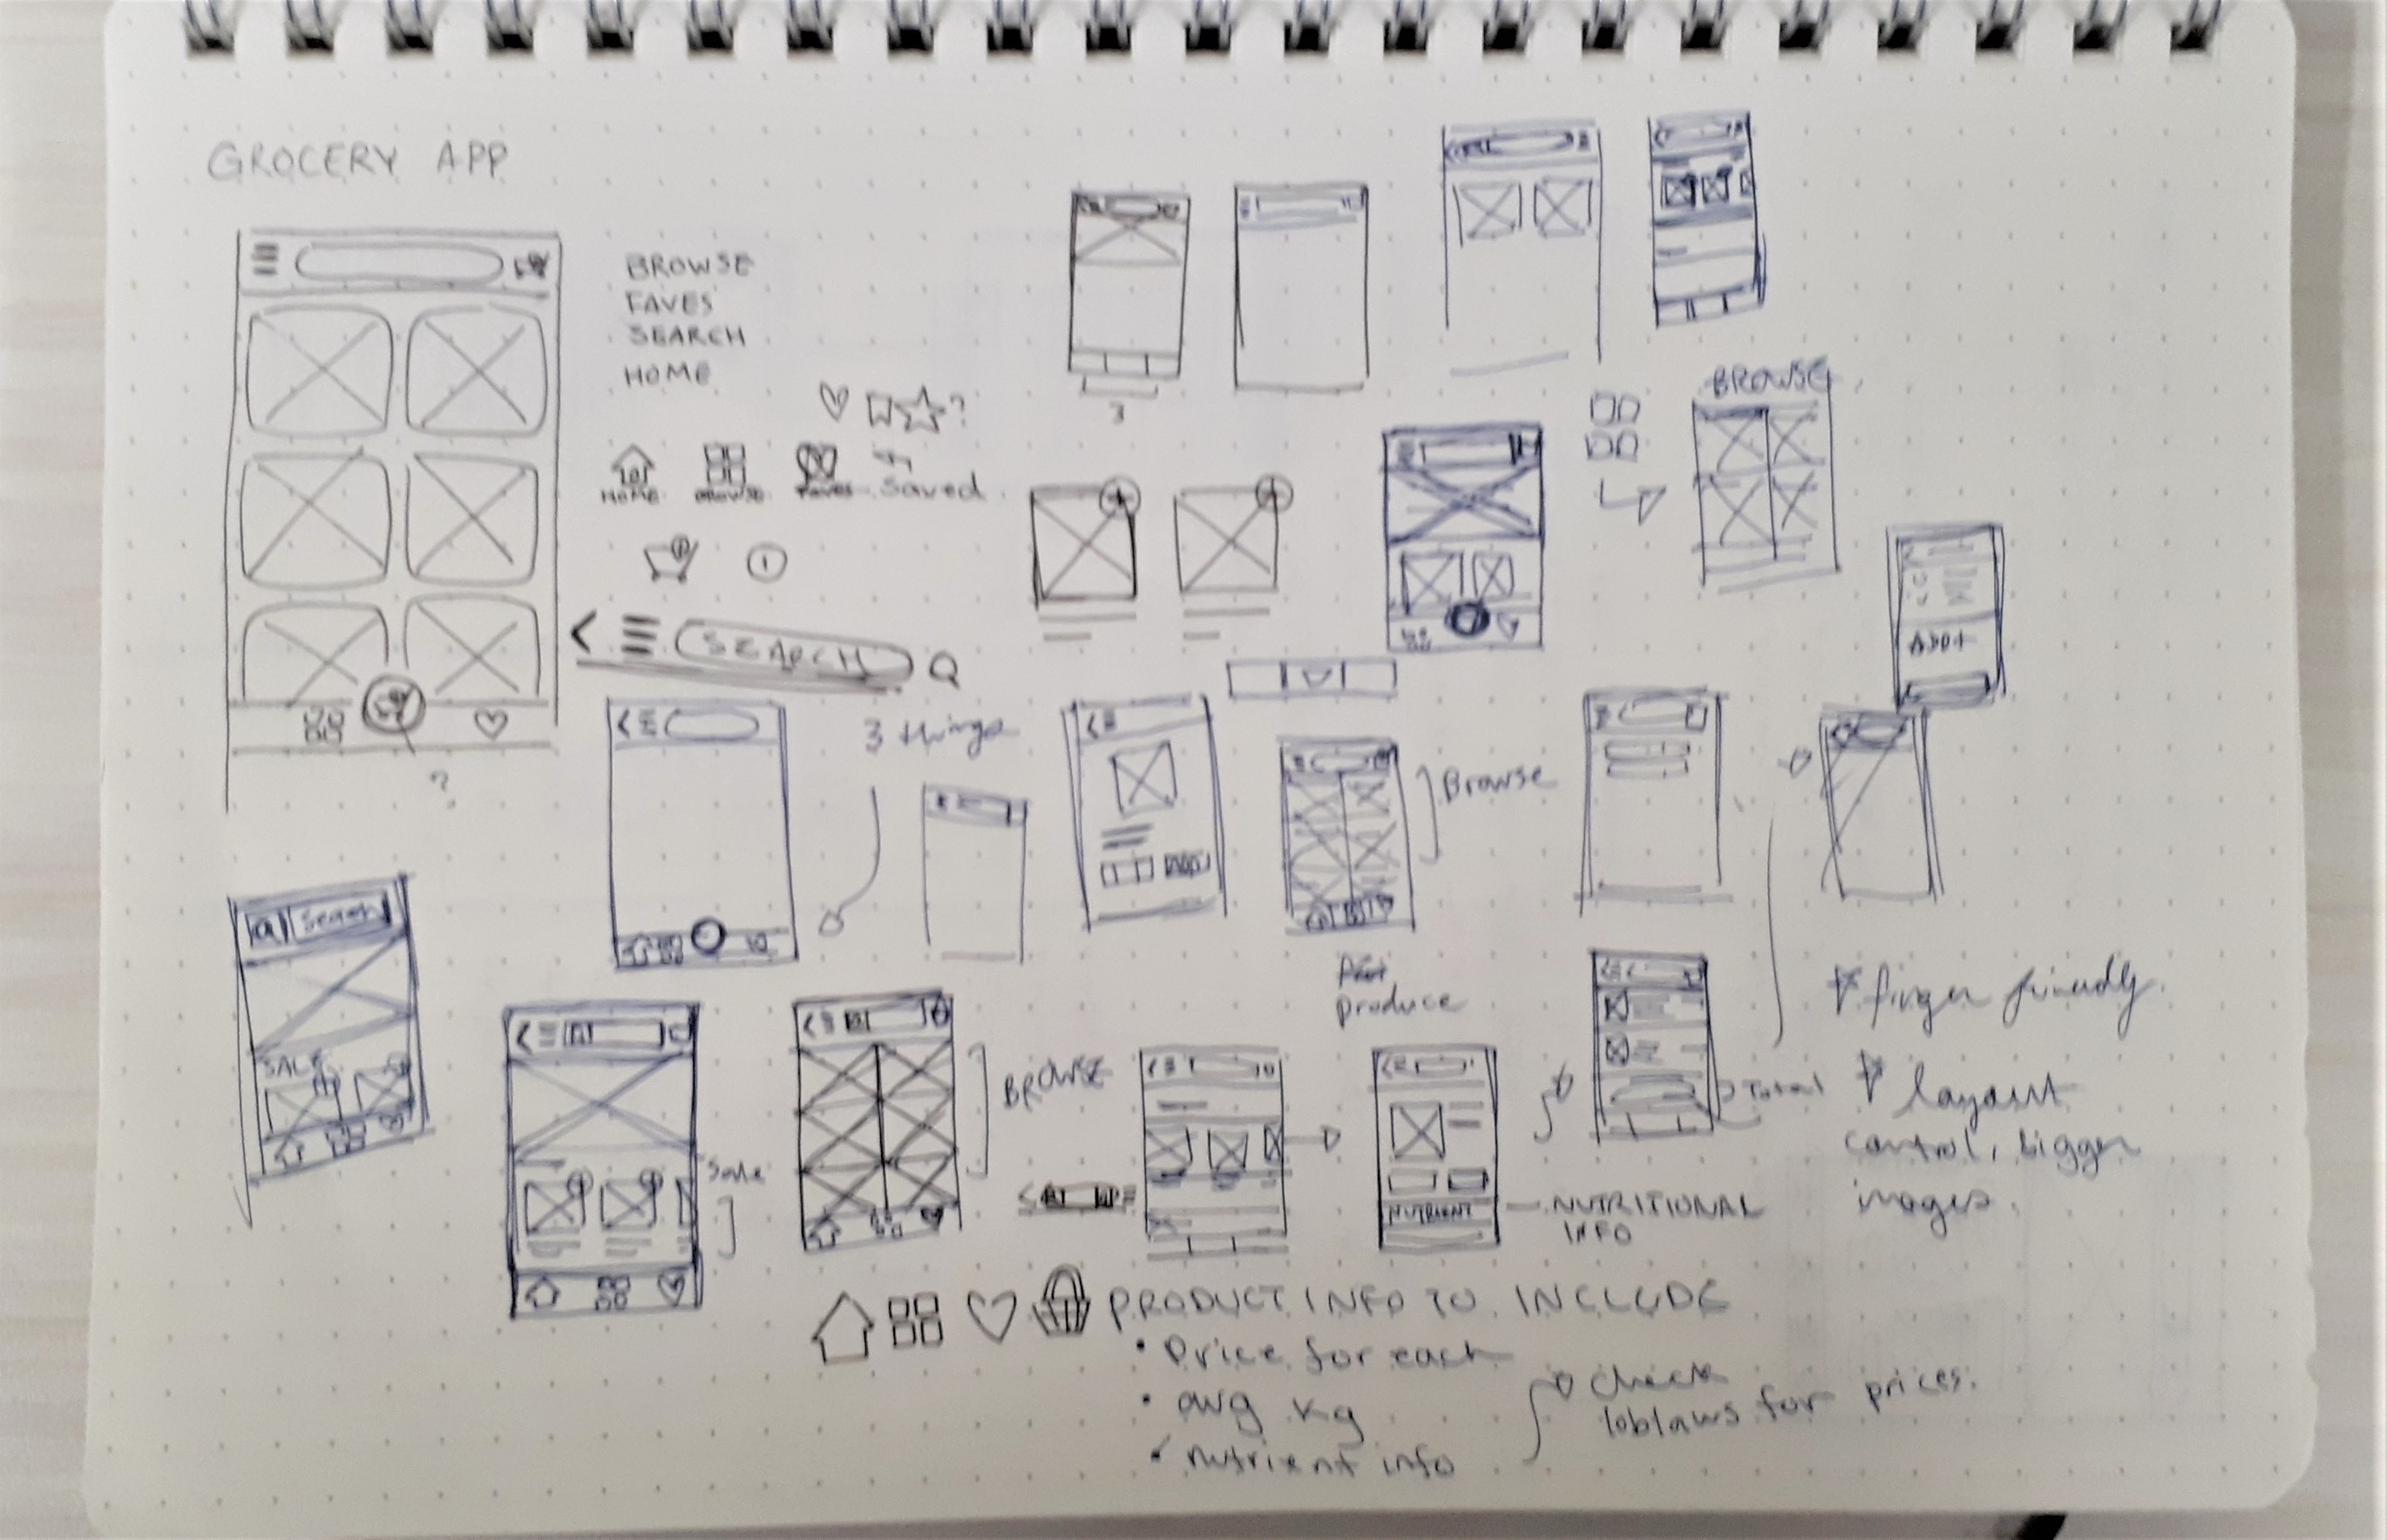 GROCERY APP
BROWSE
FAVES
SEARCH
HOME
?
HOME
BROWSE
FAVES
Saved
SEARCH
?
3
BROWSE
ADD+
3 things
ADD
Browse
Search
SALE
Sale
BROWSE
produce
Total
NUTRIENT
NUTRITIONAL
INFO
finger friendly
layout
control, bigger
images.
PRODUCT INFO TO INCLUDE
• Price for each
• avg kg
• nutrient info
check
loblaws for prices.